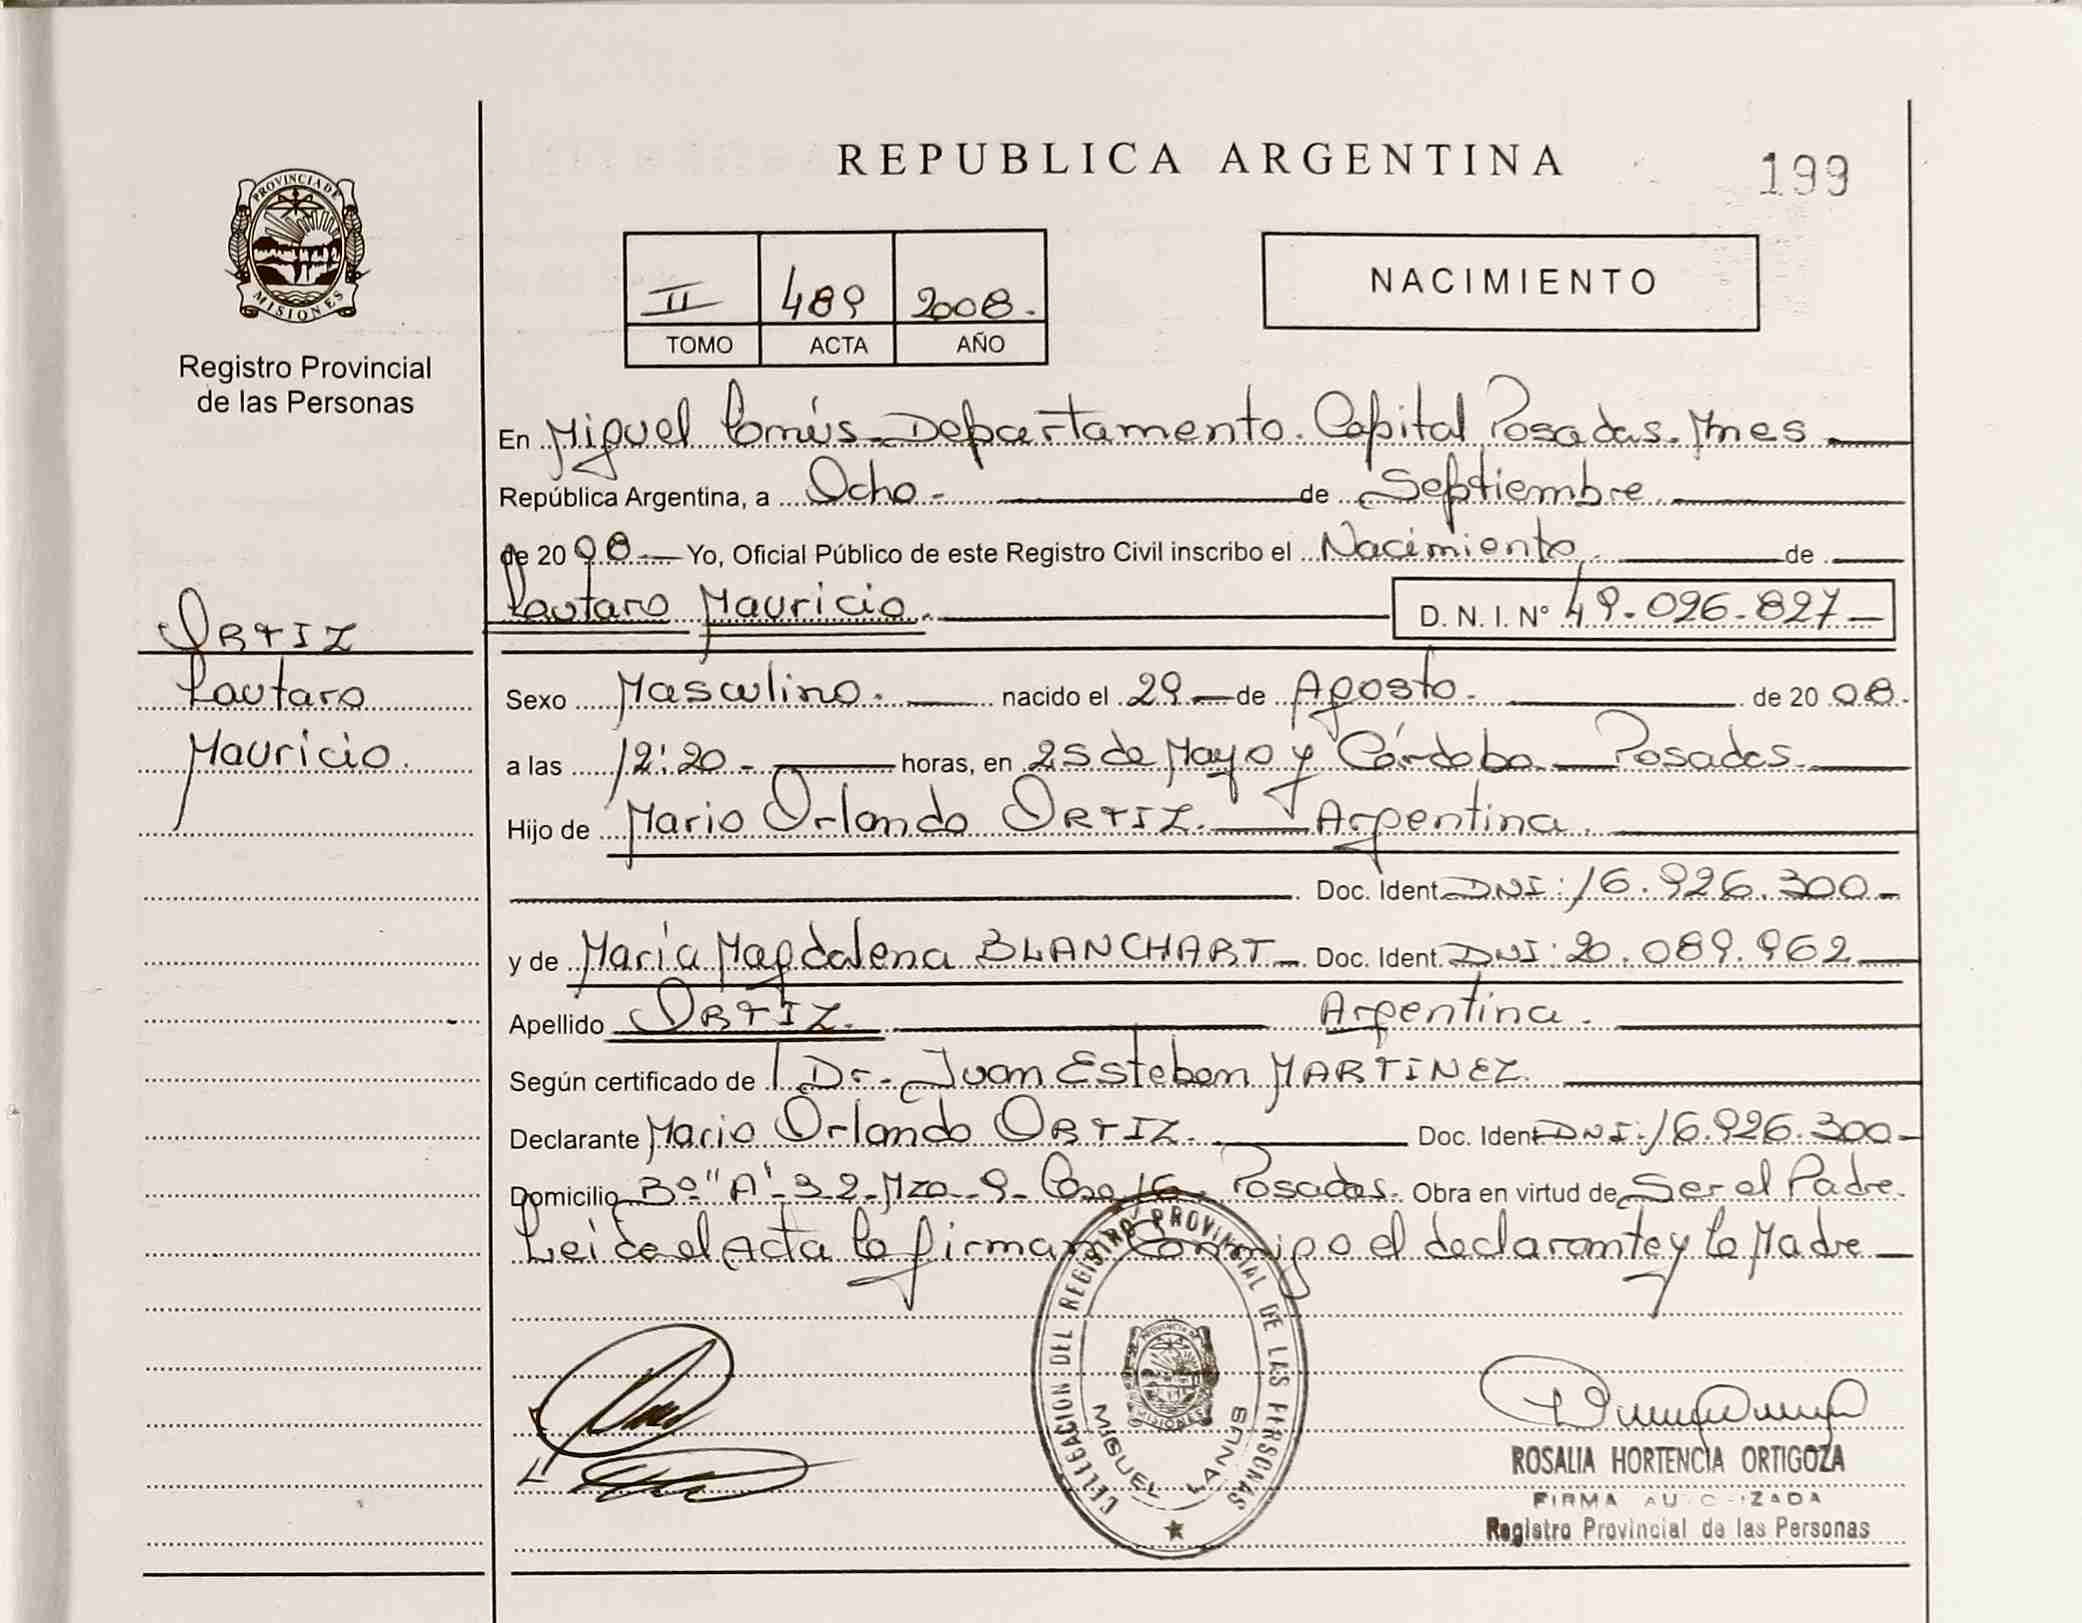 REPUBLICA ARGENTINA
199
PROVINCIA DE
MISIONES
Registro Provincial
de las Personas
II 489 2008.
TOMO ACTA AÑO
NACIMIENTO
En Miguel Lanús. Departamento. Capital Posadas. Mnes
República Argentina, a Ocho - de Septiembre
de 2008. Yo, Oficial Público de este Registro Civil inscribo el Nacimiento. de
Lautaro Mauricio. D. N. I. Nº 49.096.827
ORTIZ
Lautaro
Mauricio.
Sexo Masculino. nacido el 29 de Agosto. de 2008.
a las 12:20 - horas, en 25 de Mayo y Córdoba Posadas.
Hijo de Mario Orlando ORTIZ. Argentina.
Doc. Ident. DNI: 16.926.300-
y de María Magdalena BLANCHART Doc. Ident. DNI: 20.089.962
Apellido ORTIZ. Argentina.
Según certificado de Dr. Juan Esteban MARTINEZ.
Declarante Mario Orlando ORTIZ. Doc. Ident DNI: 16.926.300-
Domicilio Bº "A" 32 Mza 9 - Casa 16 - Posadas. Obra en virtud de Ser el Padre.
Leida el Acta la firman conmigo el declarante y la Madre
DELEGACION DEL REGISTRO PROVINCIAL DE LAS PERSONAS
PROVINCIA DE
MISIONES
MIGUEL LANUS
ROSALIA HORTENCIA ORTIGOZA
FIRMA AUTORIZADA
Registro Provincial de las Personas